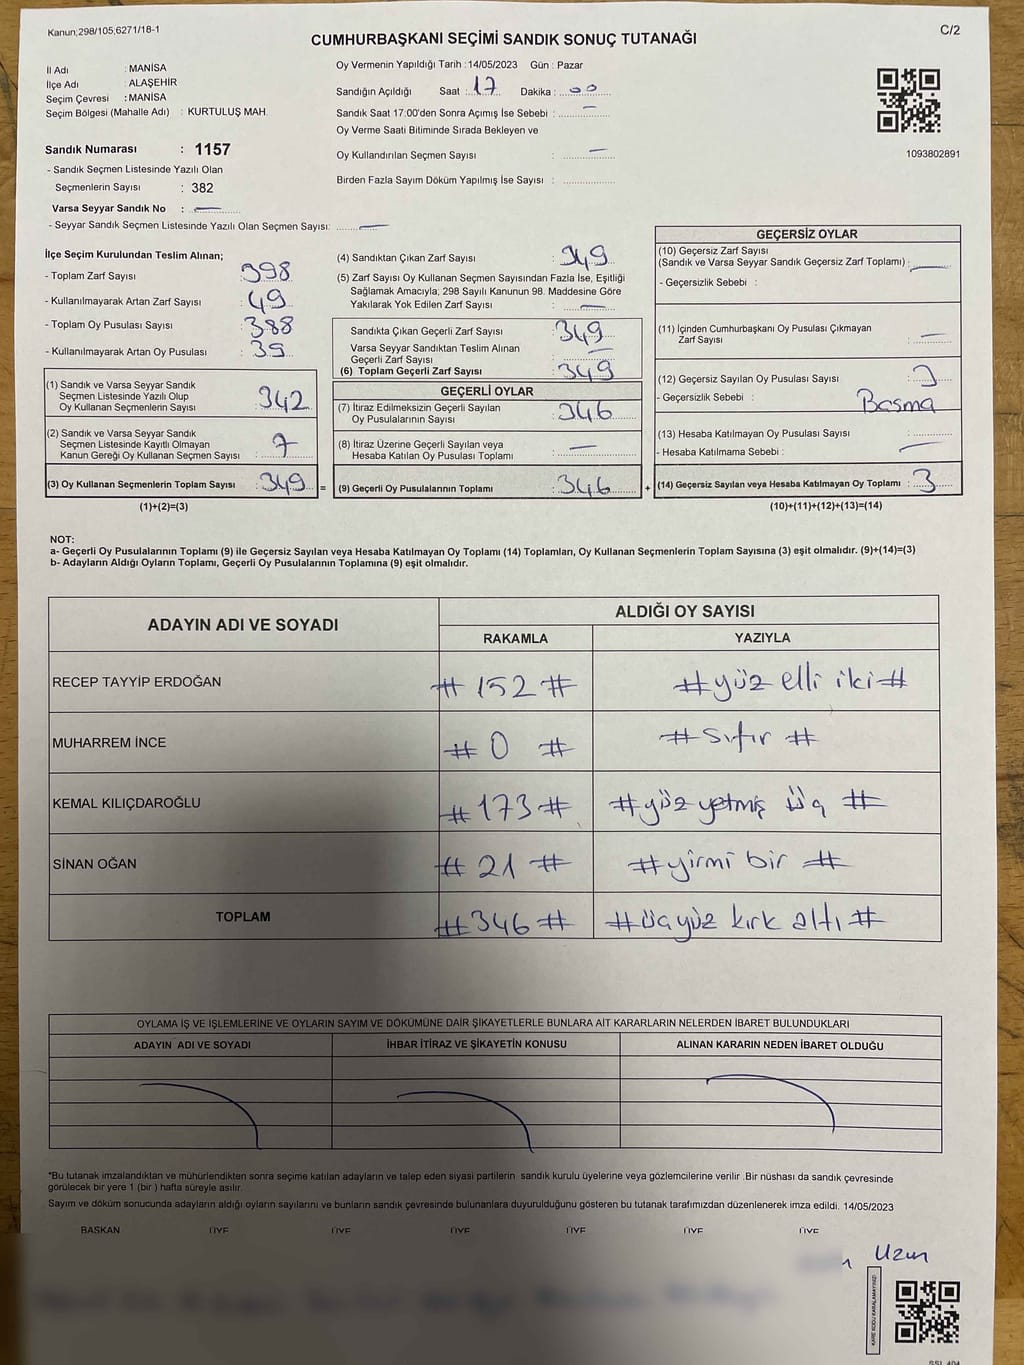 Kanun;298/105;6271/18-1
C/2
CUMHURBAŞKANI SEÇİMİ SANDIK SONUÇ TUTANAĞI
İl Adı : MANİSA
İlçe Adı : ALAŞEHİR
Seçim Çevresi : MANİSA
Seçim Bölgesi (Mahalle Adı) : KURTULUŞ MAH.
Sandık Numarası : 1157
- Sandık Seçmen Listesinde Yazılı Olan
Seçmenlerin Sayısı : 382
Varsa Seyyar Sandık No : —
- Seyyar Sandık Seçmen Listesinde Yazılı Olan Seçmen Sayısı: —
Oy Vermenin Yapıldığı Tarih : 14/05/2023 Gün : Pazar
Sandığın Açıldığı Saat : 17 Dakika : 00
Sandık Saat 17:00'den Sonra Açımış İse Sebebi : —
Oy Verme Saati Bitiminde Sırada Bekleyen ve
Oy Kullandırılan Seçmen Sayısı : —
Birden Fazla Sayım Döküm Yapılmış İse Sayısı :
1093802891
İlçe Seçim Kurulundan Teslim Alınan;
- Toplam Zarf Sayısı : 398
- Kullanılmayarak Artan Zarf Sayısı : 49
- Toplam Oy Pusulası Sayısı : 388
- Kullanılmayarak Artan Oy Pusulası : 39
(1) Sandık ve Varsa Seyyar Sandık
Seçmen Listesinde Yazılı Olup
Oy Kullanan Seçmenlerin Sayısı : 342
(2) Sandık ve Varsa Seyyar Sandık
Seçmen Listesinde Kayıtlı Olmayan
Kanun Gereği Oy Kullanan Seçmen Sayısı : 7
(3) Oy Kullanan Seçmenlerin Toplam Sayısı : 349 =
(1)+(2)=(3)
(4) Sandıktan Çıkan Zarf Sayısı : 349
(5) Zarf Sayısı Oy Kullanan Seçmen Sayısından Fazla İse, Eşitliği
Sağlamak Amacıyla; 298 Sayılı Kanunun 98. Maddesine Göre
Yakılarak Yok Edilen Zarf Sayısı : —
Sandıkta Çıkan Geçerli Zarf Sayısı : 349
Varsa Seyyar Sandıktan Teslim Alınan
Geçerli Zarf Sayısı : —
(6) Toplam Geçerli Zarf Sayısı : 349
GEÇERLİ OYLAR
(7) İtiraz Edilmeksizin Geçerli Sayılan
Oy Pusulalarının Sayısı : 346
(8) İtiraz Üzerine Geçerli Sayılan veya
Hesaba Katılan Oy Pusulası Toplamı : —
(9) Geçerli Oy Pusulalarının Toplamı : 346 +
GEÇERSİZ OYLAR
(10) Geçersiz Zarf Sayısı
(Sandık ve Varsa Seyyar Sandık Geçersiz Zarf Toplamı) : —
- Geçersizlik Sebebi :
(11) İçinden Cumhurbaşkanı Oy Pusulası Çıkmayan
Zarf Sayısı : —
(12) Geçersiz Sayılan Oy Pusulası Sayısı : 3
- Geçersizlik Sebebi : Basma
(13) Hesaba Katılmayan Oy Pusulası Sayısı :
- Hesaba Katılmama Sebebi : —
(14) Geçersiz Sayılan veya Hesaba Katılmayan Oy Toplamı : 3
(10)+(11)+(12)+(13)=(14)
NOT:
a- Geçerli Oy Pusulalarının Toplamı (9) ile Geçersiz Sayılan veya Hesaba Katılmayan Oy Toplamı (14) Toplamları, Oy Kullanan Seçmenlerin Toplam Sayısına (3) eşit olmalıdır. (9)+(14)=(3)
b- Adayların Aldığı Oyların Toplamı, Geçerli Oy Pusulalarının Toplamına (9) eşit olmalıdır.
ADAYIN ADI VE SOYADI
ALDIĞI OY SAYISI
RAKAMLA YAZIYLA
RECEP TAYYİP ERDOĞAN # 152 # # yüz elli iki #
MUHARREM İNCE # 0 # # sıfır #
KEMAL KILIÇDAROĞLU # 173 # # yüz yetmiş üç #
SİNAN OĞAN # 21 # # yirmi bir #
TOPLAM # 346 # # üçyüz kırk altı #
OYLAMA İŞ VE İŞLEMLERİNE VE OYLARIN SAYIM VE DÖKÜMÜNE DAİR ŞİKAYETLERLE BUNLARA AİT KARARLARIN NELERDEN İBARET BULUNDUKLARI
ADAYIN ADI VE SOYADI İHBAR İTİRAZ VE ŞİKAYETİN KONUSU ALINAN KARARIN NEDEN İBARET OLDUĞU
*Bu tutanak imzalandıktan ve mühürlendikten sonra seçime katılan adayların ve talep eden siyasi partilerin sandık kurulu üyelerine veya gözlemcilerine verilir .Bir nüshası da sandık çevresinde
görülecek bir yere 1 (bir ) hafta süreyle asılır.
Sayım ve döküm sonucunda adayların aldığı oyların sayılarını ve bunların sandık çevresinde bulunanlara duyurulduğunu gösteren bu tutanak tarafımızdan düzenlenerek imza edildi. 14/05/2023
BAŞKAN ÜYE ÜYE ÜYE ÜYE ÜYE ÜYE
Uzun
KARE KODU KARALAMAYINIZ!